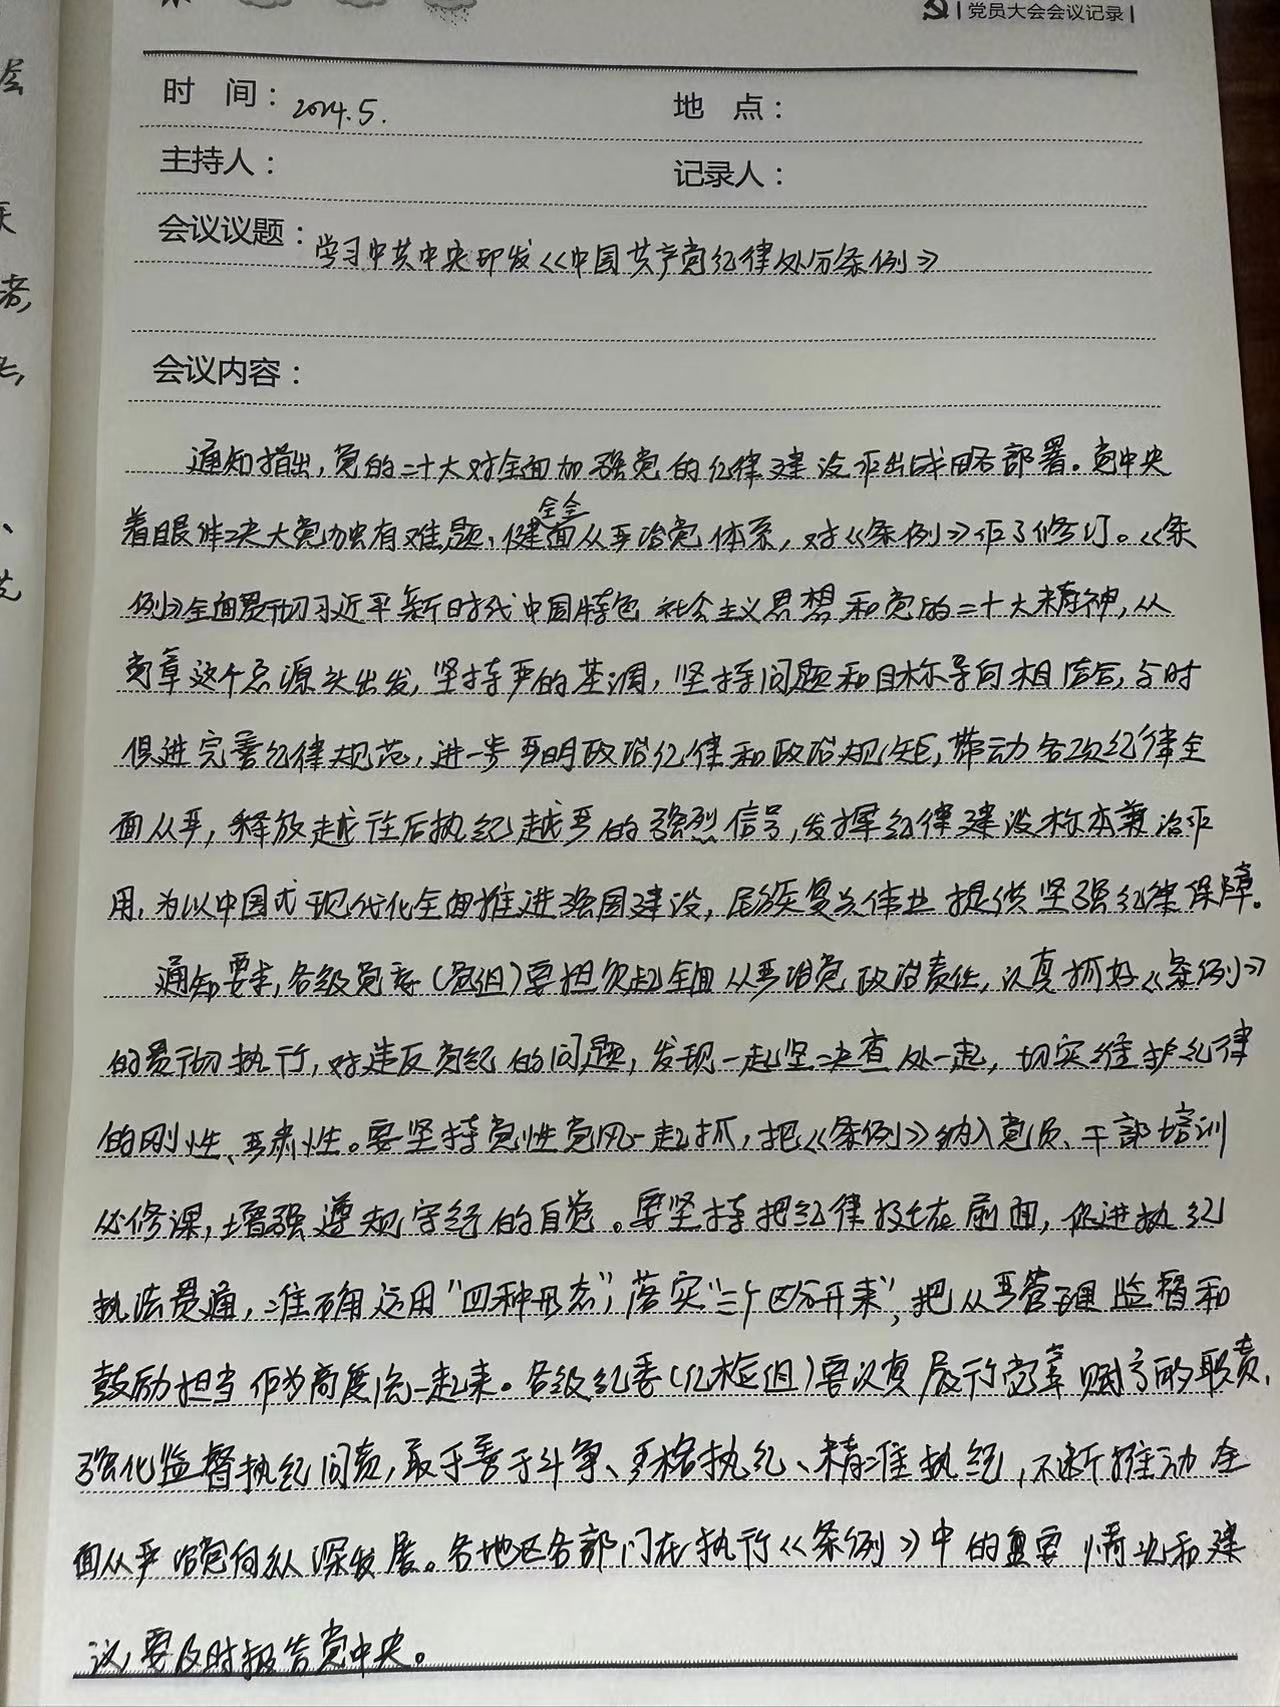 党员大会会议记录
时 间：2024.5.
地 点：
主持人：
记录人：
会议议题：学习中共中央印发《中国共产党纪律处分条例》
会议内容：
通知指出，党的二十大对全面加强党的纪律建设作出战略部署。党中央
着眼解决大党独有难题、健全全面从严治党体系，对《条例》作了修订。《条
例》全面贯彻习近平新时代中国特色社会主义思想和党的二十大精神，从
党章这个总源头出发，坚持严的基调，坚持问题和目标导向相结合，与时
俱进完善纪律规范，进一步严明政治纪律和政治规矩，带动各项纪律全
面从严，释放越往后执纪越严的强烈信号，发挥纪律建设标本兼治作
用，为以中国式现代化全面推进强国建设，民族复兴伟业提供坚强纪律保障。
通知要求，各级党委（党组）要担负起全面从严治党政治责任，认真抓好《条例》
的贯彻执行，对违反党纪的问题，发现一起坚决查处一起，切实维护纪律
的刚性、严肃性。要坚持党性党风一起抓，把《条例》纳入党员、干部培训
必修课，增强遵规守纪的自觉。要坚持把纪律挺在前面，促进执纪
执法贯通，准确运用“四种形态”，落实“三个区分开来”，把从严管理监督和
鼓励担当作为高度统一起来。各级纪委（纪检组）要认真履行党章赋予的职责，
强化监督执纪问责，敢于善于斗争、严格执纪、精准执纪，不断推动全
面从严治党向纵深发展。各地区各部门在执行《条例》中的重要情况和建
议，要及时报告党中央。